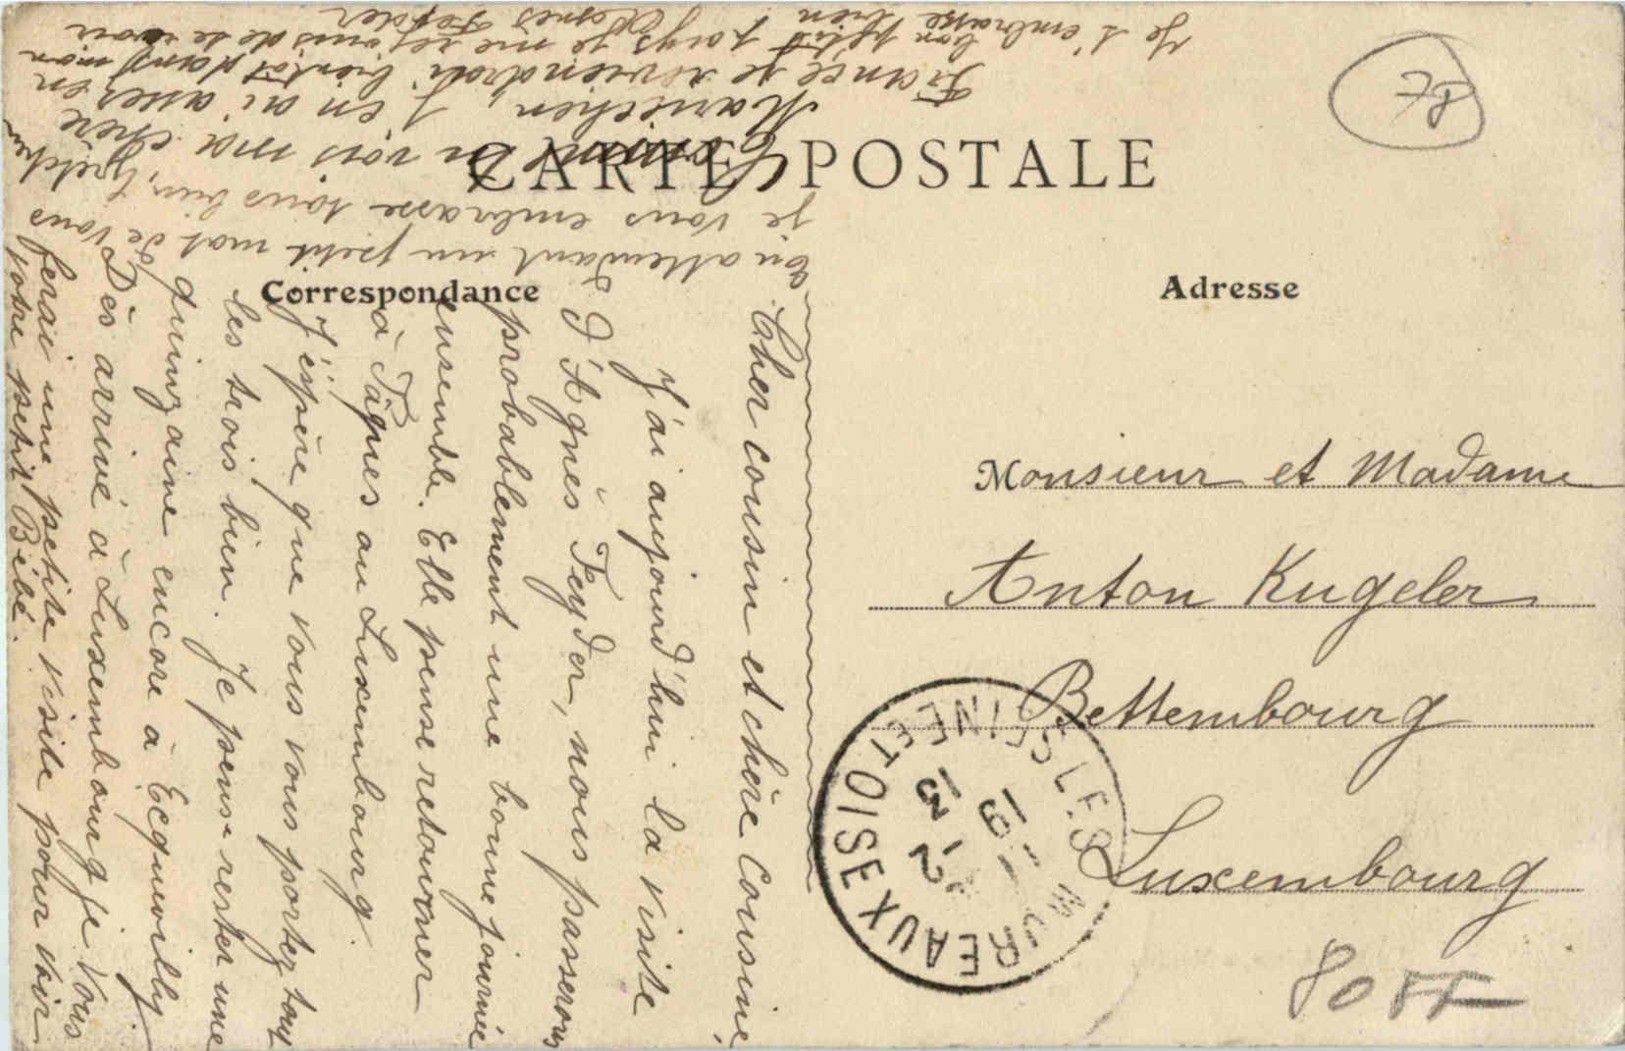 CARTE POSTALE
Correspondance
Adresse
Cher cousin et chère Cousine,
J'ai aujourd'hui la visite
d'Agnès Feyder, nous passerons
probablement une bonne journée
ensemble. Elle pense retourner
à Pâques au Luxembourg.
J'éspère que vous vous portez tous
les trois bien. Je pense rester une
quinzaine encore à Ecquevilly.
Dès arrivé à Luxembourg je vous
ferai une petite visite pour voir
votre petit Bébé.
En attendant un petit mot de vous
je vous embrasse tous bien, Gretchen
Comme tu vois ma chère
Mariechen, j'en ai assez en
France je reviendrai bientôt dans mon
bon petit pays je me réjouis de te revoir
Je t'embrasse bien Agnes Feyder
Monsieur et Madame
Anton Kugeler
Bettembourg
Luxembourg
LES MUREAUX SEINE ET OISE
19
2
13
80 FF